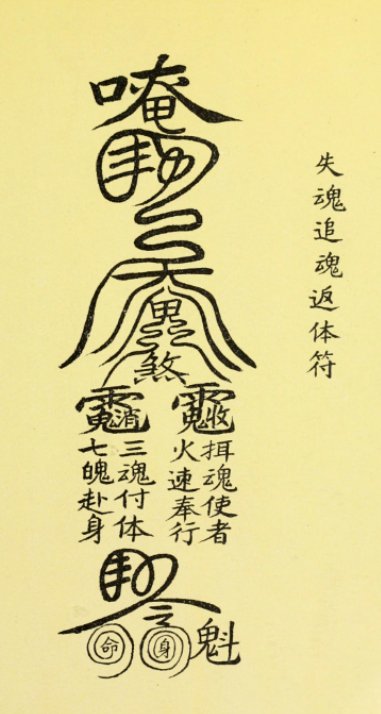 失魂追魂返体符
唵
煞
收
挕魂使者
火速奉行
消
三魂付体
七魄赴身
令
身
命
魁